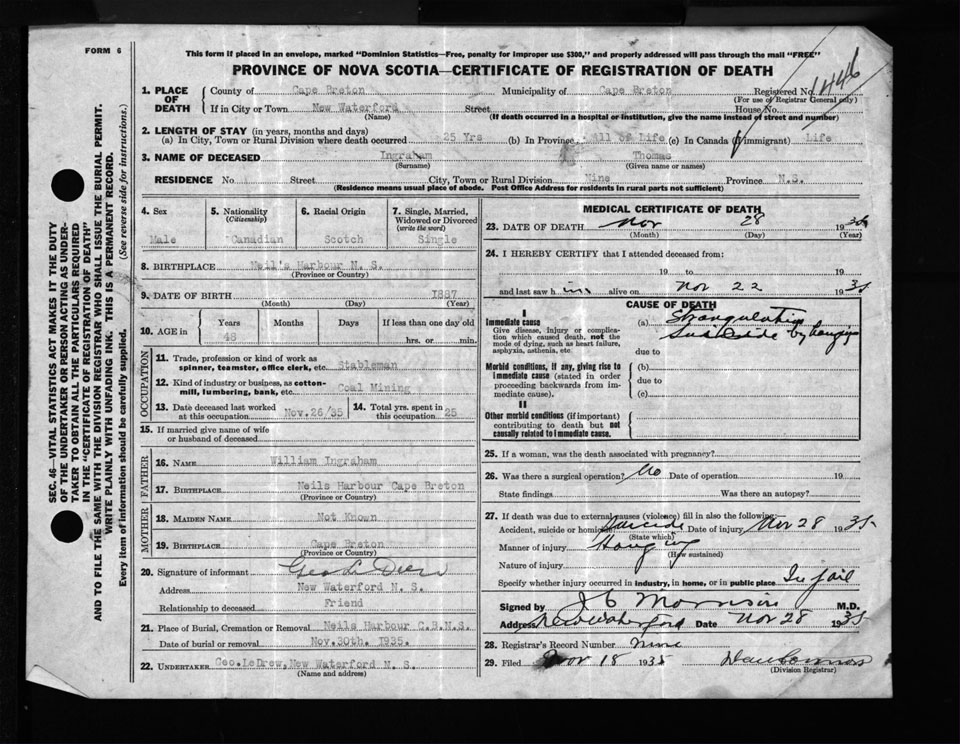 FORM 6
This form if placed in an envelope, marked "Dominion Statistics—Free, penalty for improper use $300," and properly addressed will pass through the mail "FREE"
PROVINCE OF NOVA SCOTIA—CERTIFICATE OF REGISTRATION OF DEATH
1446
SEC. 46—VITAL STATISTICS ACT MAKES IT THE DUTY
OF THE UNDERTAKER OR PERSON ACTING AS UNDER-
TAKER TO OBTAIN ALL THE PARTICULARS REQUIRED
IN THE "CERTIFICATE OF REGISTRATION OF DEATH"
AND TO FILE THE SAME WITH THE DIVISION REGISTRAR WHO SHALL ISSUE THE BURIAL PERMIT.
WRITE PLAINLY WITH UNFADING INK. THIS IS A PERMANENT RECORD.
Every item of information should be carefully supplied. (See reverse side for instructions.)
1. PLACE OF DEATH
County of Cape Breton Municipality of Cape Breton Registered No.
(For use of Registrar General only)
If in City or Town New Waterford Street House No.
(Name) (If death occurred in a hospital or institution, give the name instead of street and number)
2. LENGTH OF STAY (in years, months and days)
(a) In City, Town or Rural Division where death occurred 25 Yrs (b) In Province All of Life (c) In Canada (if immigrant) Life
3. NAME OF DECEASED Ingraham Thomas
(Surname) (Given name or names)
RESIDENCE No. Street City, Town or Rural Division Nine Province N.S.
(Residence means usual place of abode. Post Office Address for residents in rural parts not sufficient)
4. Sex
Male
5. Nationality
(Citizenship)
Canadian
6. Racial Origin
Scotch
7. Single, Married,
Widowed or Divorced
(write the word)
Single
8. BIRTHPLACE Neil's Harbour N. S.
(Province or Country)
9. DATE OF BIRTH 1887
(Month) (Day) (Year)
10. AGE in
Years Months Days If less than one day old
48 hrs. or min.
OCCUPATION
11. Trade, profession or kind of work as
spinner, teamster, office clerk, etc. Stableman
12. Kind of industry or business, as cotton-
mill, lumbering, bank, etc. Coal Mining
13. Date deceased last worked
at this occupation Nov.26/35
14. Total yrs. spent in
this occupation 25
15. If married give name of wife
or husband of deceased
FATHER
16. NAME William Ingraham
17. BIRTHPLACE Neils Harbour Cape Breton
(Province or Country)
MOTHER
18. MAIDEN NAME Not Known
19. BIRTHPLACE Cape Breton
(Province or Country)
20. Signature of informant Geo Le Drew
Address New Waterford N. S.
Relationship to deceased Friend
21. Place of Burial, Cremation or Removal Neils Harbour C.B.N.S.
Date of burial or removal Nov.30th. 1935.
22. UNDERTAKER Geo.LeDrew,New Waterford N. S.
(Name and address)
MEDICAL CERTIFICATE OF DEATH
23. DATE OF DEATH Nov 28 1935
(Month) (Day) (Year)
24. I HEREBY CERTIFY that I attended deceased from:
19 to 19
and last saw him alive on Nov 22 1935
CAUSE OF DEATH
I
Immediate cause
Give disease, injury or complica-
tion which caused death, not the
mode of dying, such as heart failure,
asphyxia, asthenia, etc
(a) Strangulation
Suicide by hanging
due to
Morbid conditions, if any, giving rise to
immediate cause (stated in order
proceeding backwards from im-
mediate cause).
(b)
due to
(c)
II
Other morbid conditions (if important)
contributing to death but not
causally related to immediate cause.
25. If a woman, was the death associated with pregnancy?
26. Was there a surgical operation? No Date of operation 19
State findings Was there an autopsy?
27. If death was due to external causes (violence) fill in also the following:
Accident, suicide or homicide? Suicide Date of injury Nov 28 1935
(State which)
Manner of injury Hanging
(How sustained)
Nature of injury
Specify whether injury occurred in industry, in home, or in public place In jail
Signed by J C Morrison M.D.
Address New Waterford Date Nov 28 1935
28. Registrar's Record Number Nine
29. Filed Nov 18 1935
(Division Registrar)